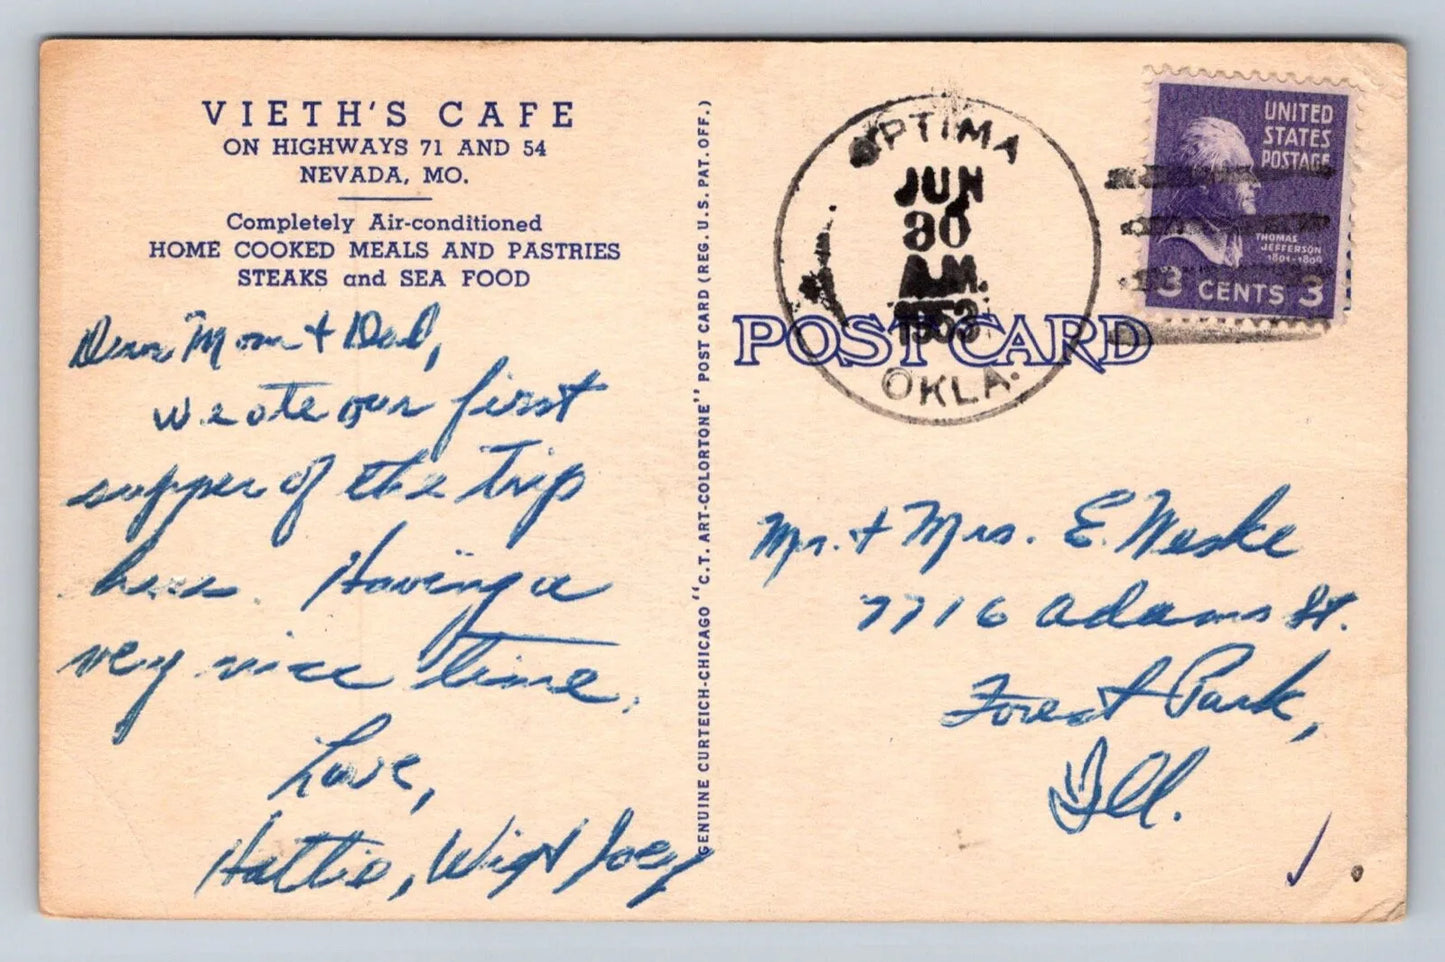 VIETH'S CAFE
ON HIGHWAYS 71 AND 54
NEVADA, MO.
Completely Air-conditioned
HOME COOKED MEALS AND PASTRIES
STEAKS and SEA FOOD
Dear Mom + Dad,
we ate our first
supper of the trip
here. Having a
very nice time.
Love,
Hattie, Wig + Joey
GENUINE CURTEICH-CHICAGO "C.T. ART-COLORTONE" POST CARD (REG. U.S. PAT. OFF.)
OPTIMA
JUN
30
A.M.
1953
OKLA.
UNITED
STATES
POSTAGE
THOMAS
JEFFERSON
1801-1809
3 CENTS 3
POST CARD
Mr. + Mrs. E. Weske
7716 Adams St.
Forest Park,
Ill.